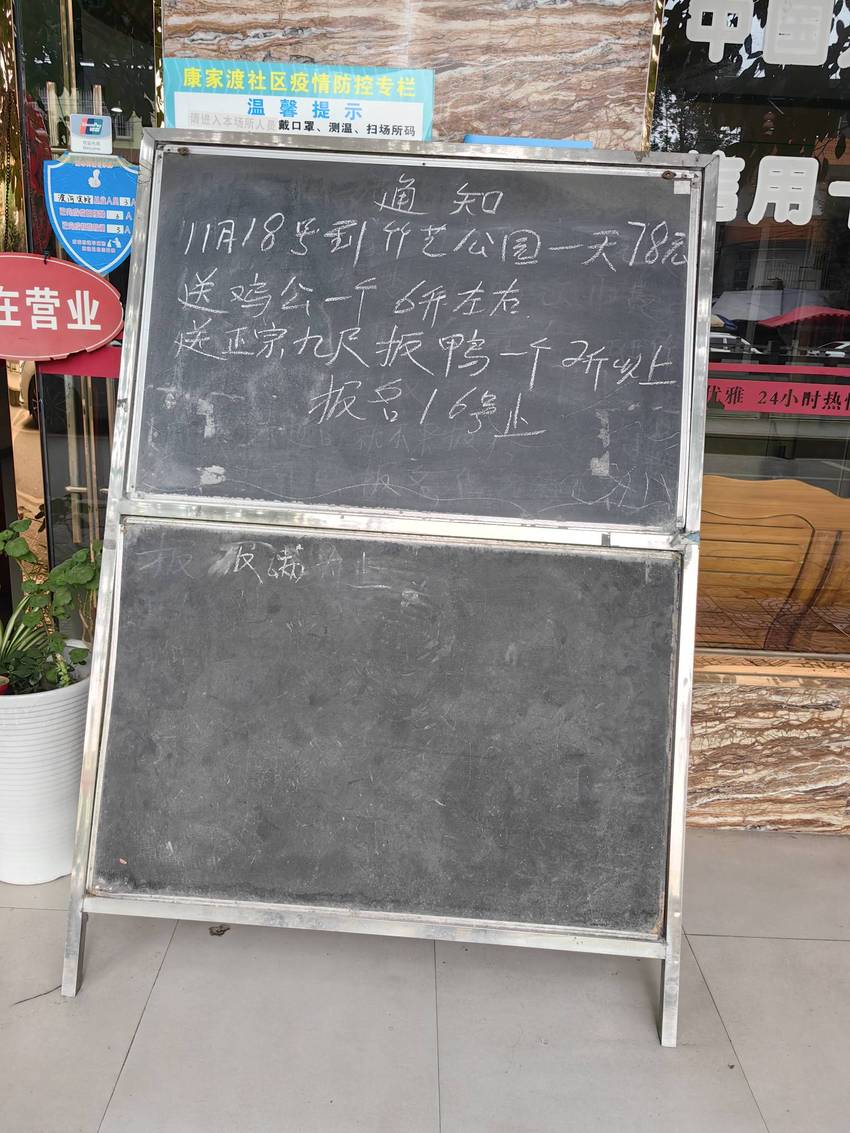 康家渡社区疫情防控专栏
温馨提示
请进入本场所人员戴口罩、测温、扫场所码
中国
信用卡
在营业
优雅 24小时热情
通知
11月18号到竹艺公园一天78元
送鸡公一个 6斤左右
送正宗九尺板鸭一个2斤以上
报名16号止